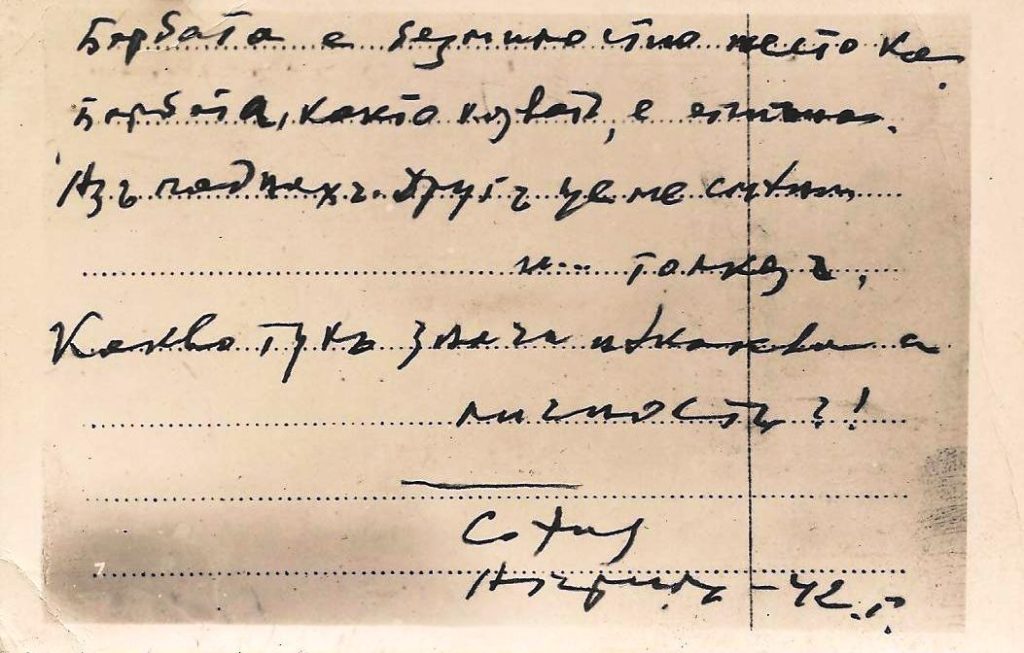 Борбата е безмилостно жестока.
Борбата, както казват, е епична.
Азъ паднахъ. Другъ ще ме смѣни
и... толкозъ,
Какво тукъ значи нѣкаква си
личность?!
София
Априлъ -42.г.
7